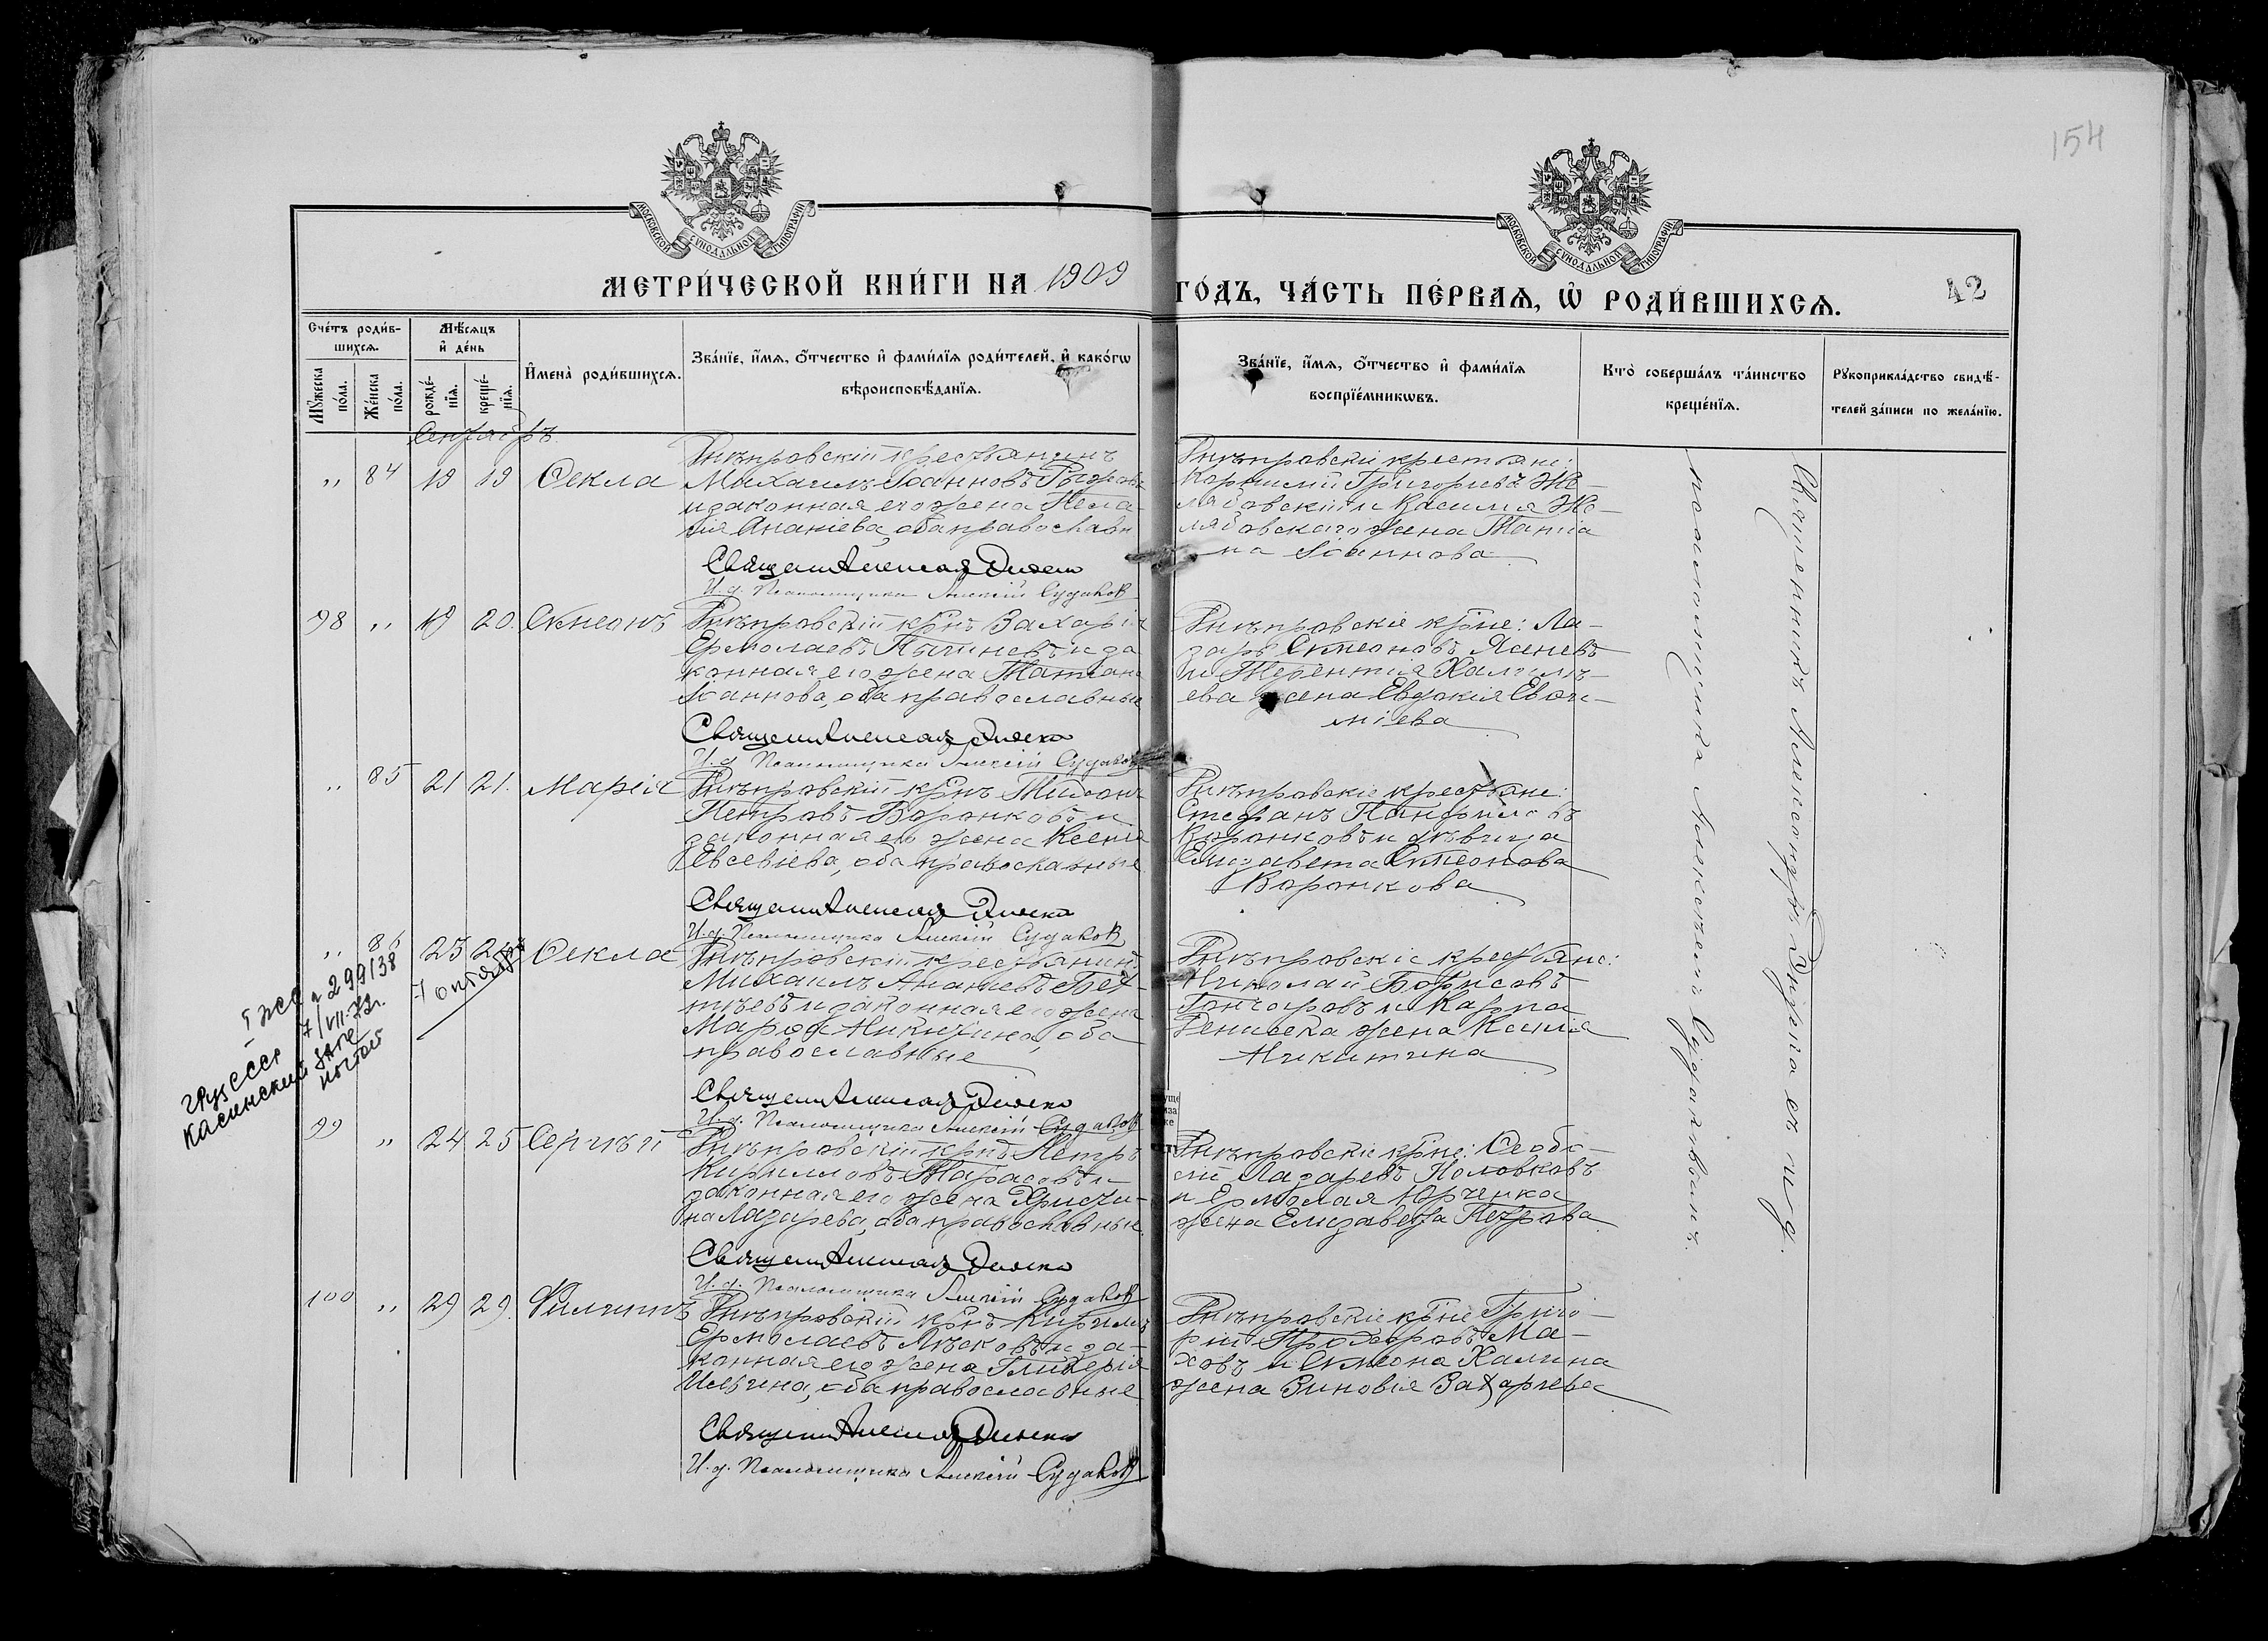 154
МОСКОВСКОЙ СѴНОДАЛЬНОЙ ТИПОГРАФІИ
МОСКОВСКОЙ СѴНОДАЛЬНОЙ ТИПОГРАФІИ
МЕТРИ́ЧЕСКОЙ КНИ́ГИ НА 1909
ГО́ДЪ, ЧА́СТЬ ПЕ́РВАѦ, Ѡ҆ РОДИ́ВШИХСѦ.
42
Сче́тъ роди́в-
шихсѧ.
Мꙋ́жеска по́ла.
Же́нска по́ла.
Мѣ́сѧцъ
и҆ де́нь
рожде́-
нїѧ.
креще́-
нїѧ.
И҆мена̀ роди́вшихсѧ.
Зва́нїе, и҆́мѧ, ѻ҆́тчество и҆ фами́лїѧ роди́телей, и҆ како́гѡ
вѣроисповѣ́данїѧ.
Зва́нїе, и҆́мѧ, ѻ҆́тчество и҆ фами́лїѧ
воспрїе́мникѡвъ.
Кто̀ соверша́лъ та́инство
креще́нїѧ.
Рꙋкоприкла́дство свидѣ́-
телей за́писи по жела́нїю.
Сентябрь
„ 84 19 19 Ѳекла
Днѣпровскій крестьянинъ
Михаилъ Іоанновъ
и законная его жена Пела-
гія Ананіева, оба православн
Священ Александръ
И. д. Псаломщика Алексій Судаков
Днѣпровскіе крестьяне:
Корнилій Григорьевъ Же-
лябовскій и Василія Же-
лябовскаго жена Татіа
на Іоаннова
98 „ 19 20. Сѵмеонъ
Днѣпровскій кр̃нъ Захарія
Ермолаевъ и за
конная его жена Татіана
Іоаннова, оба православные
Священ Александръ
И. д. Псаломщика Алексій Судаков
Днѣпровскіе кр̃не: Ла-
зарь Сѵмеоновъ Ясеневъ
и Терентія
ева жена Евдокія Евѳи-
міева
„ 85 21 21. Марія
Днѣпровскій кр̃нъ Тимонъ
Петровъ Воронковъ и
законная его жена Ксенія
Евсевіева, оба православные
Священ Александръ
И. д. Псаломщика Алексій Судаков
Днѣпровскіе крестьяне:
Стефанъ Панфиловъ
Воронковъ и дѣвица
Елизавета Сѵмеонова
Воронкова
„ 86 23 24 Ѳекла
7 октября
299138
7/VII-72г.
Днѣпровскій крестьянинъ
Михаилъ Ананіевъ
и законная его жена
Марѳа Никитина, оба
православные
Священ Александръ
И. д. Псаломщика Алексій Судаков
Днѣпровскіе крестьяне:
Николай Борисовъ
Гончаровъ и Карпа
жена Ксенія
Никитина
99 „ 24 25 Сергѣй
Днѣпровскій кр̃нъ Петръ
Кирилловъ Тарасовъ и
законная его жена Христи-
на Лазарева, оба православные
Священ Александръ
И. д. Псаломщика Алексій Судаков
Днѣпровскіе кр̃не: Ѳеодо-
сій Лазаревъ Половковъ
и Ермолая Юрченка
жена Елизавета Петрова
100 „ 29 29. Филиппъ
Днѣпровскій кр̃нъ Кириллъ
Ермолаевъ Лѣсковъ и за-
конная его жена Гликерія
Ильина, оба православные
Священ Александръ
И. д. Псаломщика Алексій Судаков
Днѣпровскіе кр̃не Григо-
рій Ѳеодоровъ Ма-
ховъ и Сѵмеона Калина
жена Зиновія Захаріева
Священникъ Александръ съ и. д.
псаломщика Алексѣемъ Судаковымъ.